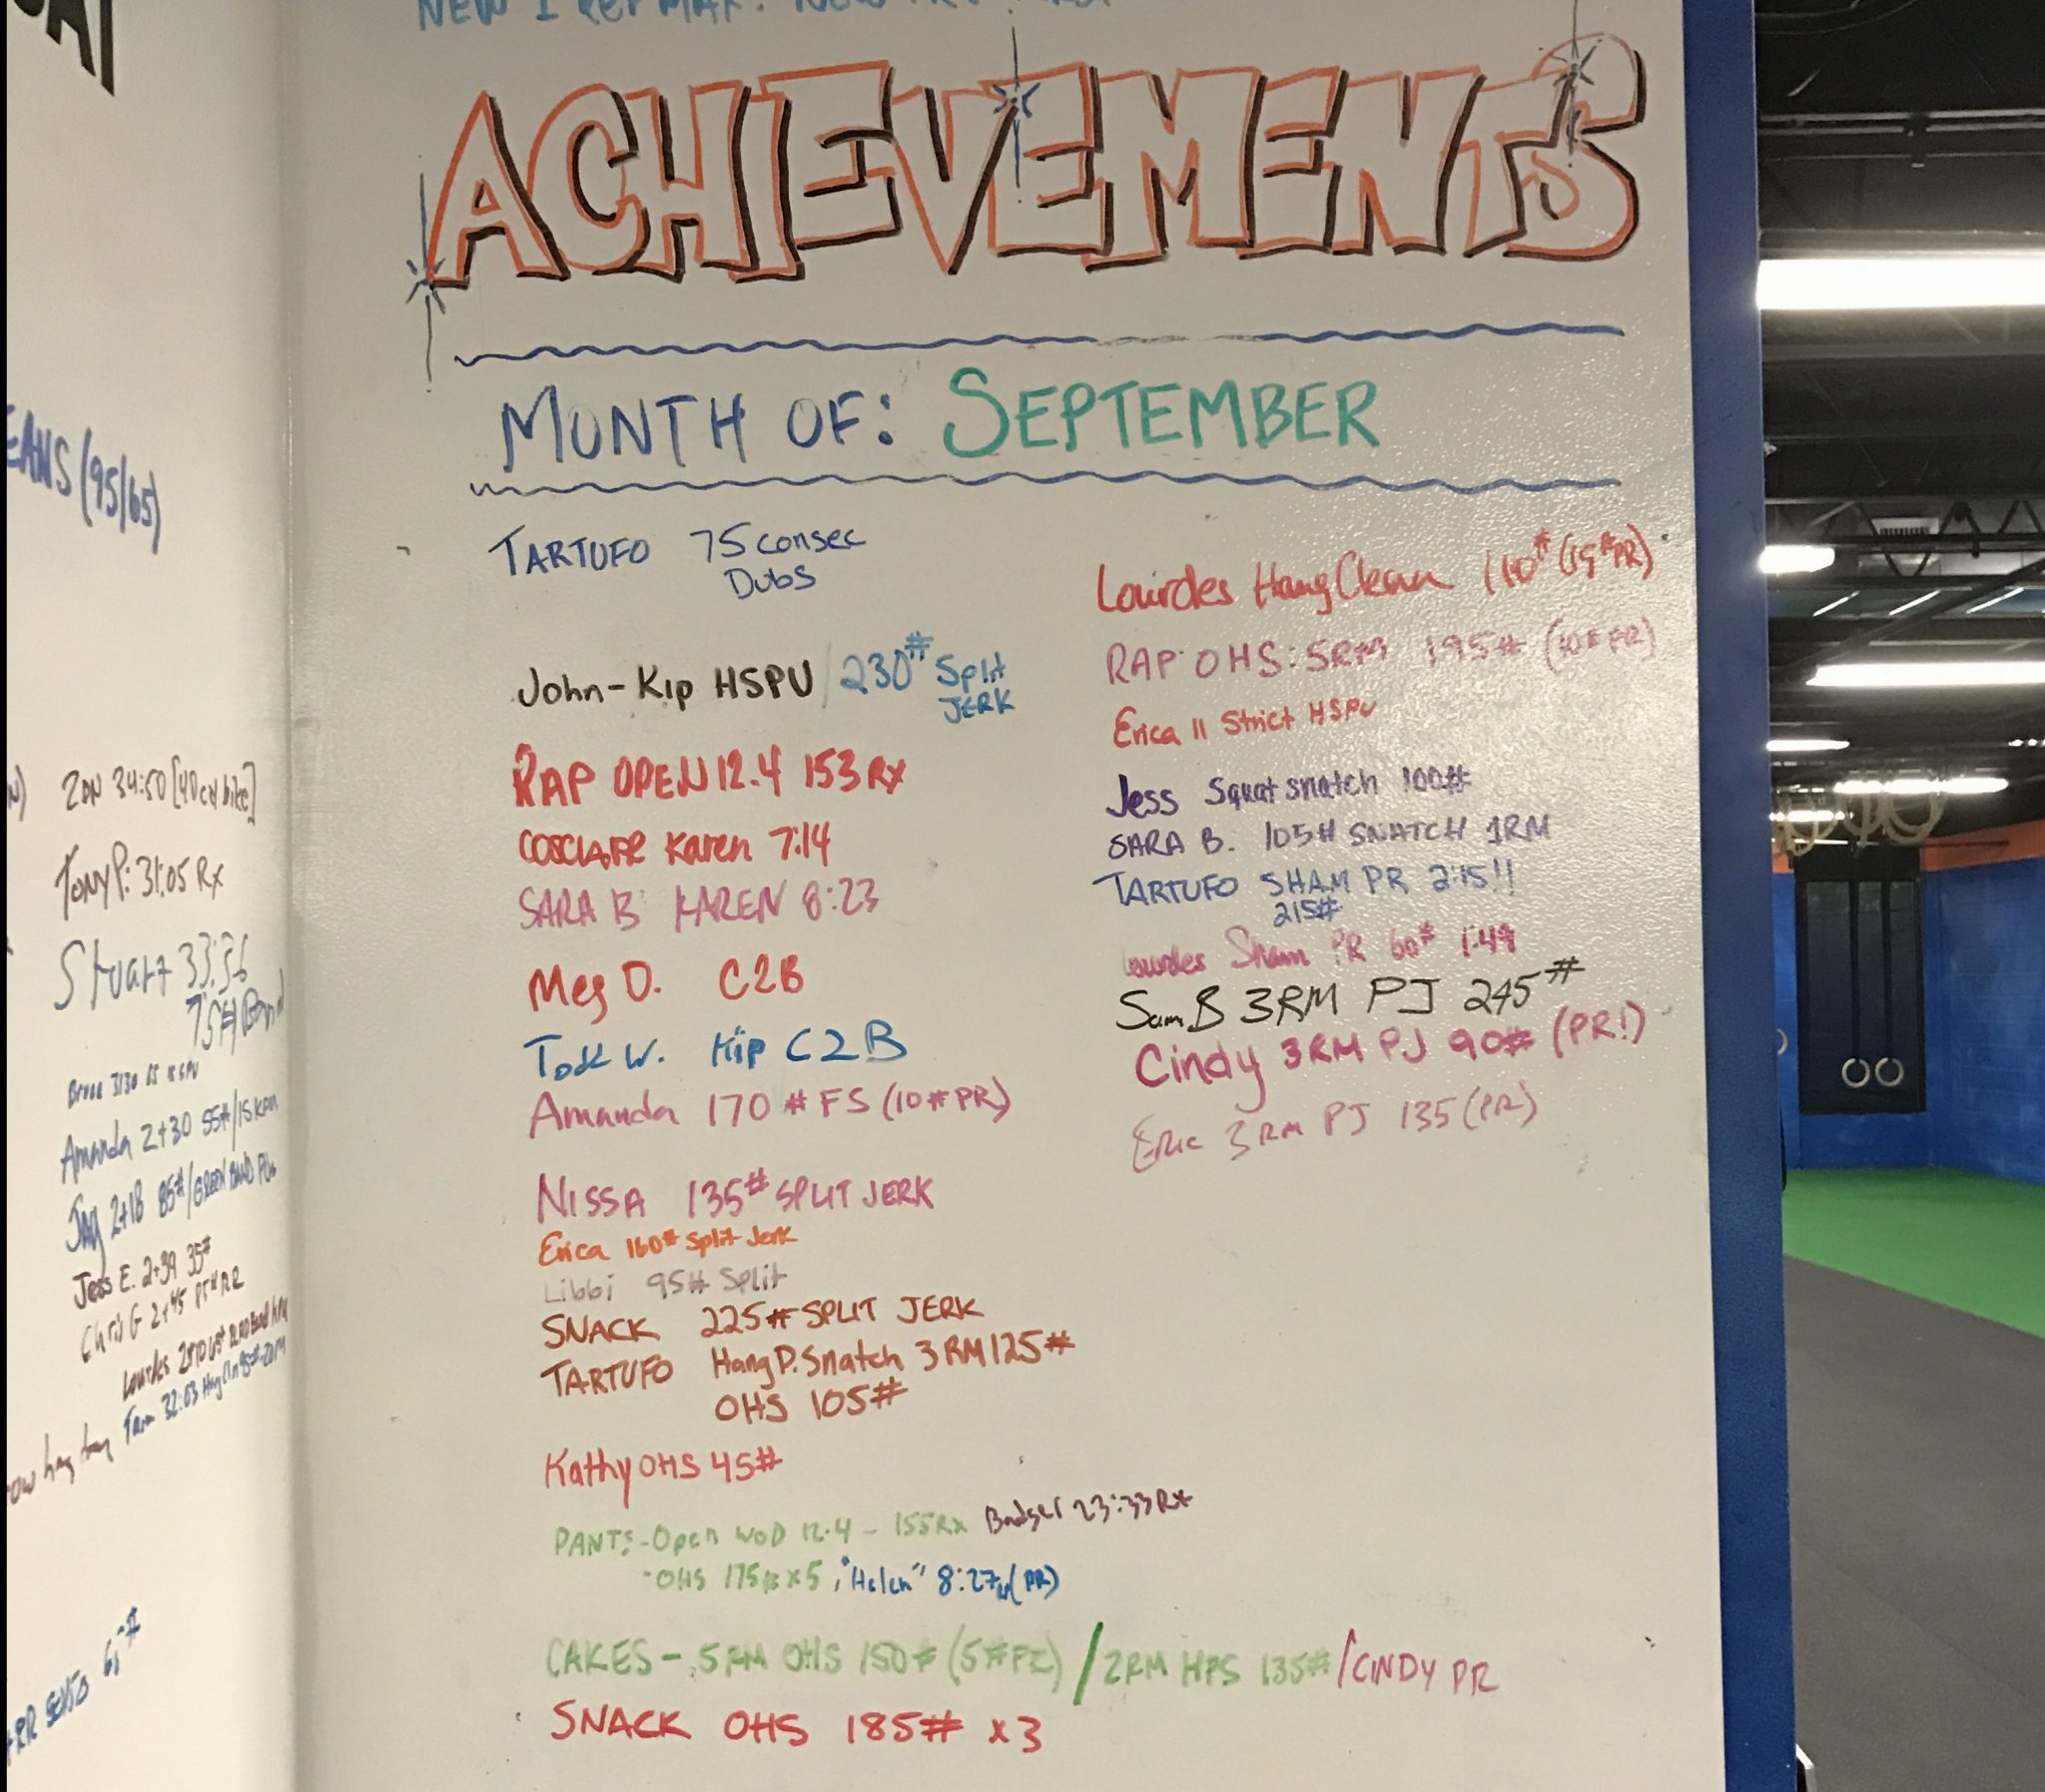 ACHIEVEMENTS
MONTH OF: SEPTEMBER
TARTUFO 75 consec
Dubs
John-Kip HSPU / 230# Split
JERK
RAP OPEN 12.4 153 RX
Karen 7:14
SARA B KAREN 8:23
Meg D. C2B
Todd W. Kip C2B
Amanda 170 # FS (10 # PR)
NISSA 135# SPLIT JERK
Erica 160# Split Jerk
Libbi 95# Split
SNACK 225# SPLIT JERK
TARTUFO Hang P. Snatch 3 RM 125#
OHS 105#
Kathy OHS 45#
PANTS - Open WOD 12.4 - 155 Rx Badger 23:33 Rx
- OHS 175# x 5, "Helen" 8:27 (PR)
CAKES - 5RM OHS 150# (5#PR) / 2RM HPS 135# / CINDY PR
SNACK OHS 185# x3
Lourdes Hang Clean 110# (15# PR)
RAP OHS: 5RM 195# (10# PR)
Erica 11 Strict HSPU
Jess Squat snatch 100#
SARA B. 105# SNATCH 1RM
TARTUFO SHAM PR 2:15!!
215#
Lourdes Sham PR 60# 1:49
Sam B 3RM PJ 245#
Cindy 3RM PJ 90# (PR!)
Eric 3RM PJ 135 (PR)
EANS (95/65)
ZDN 34:50 [40 cal bike]
Tony P: 31:05 Rx
Stuart 33:56
75# Band
Amanda 2+30 55#/15 kpn
Jay 2+18 85#/GREEN BAND PUs
Jess E. 2+39 35#
Chris G 2+45
Lourdes
32:03